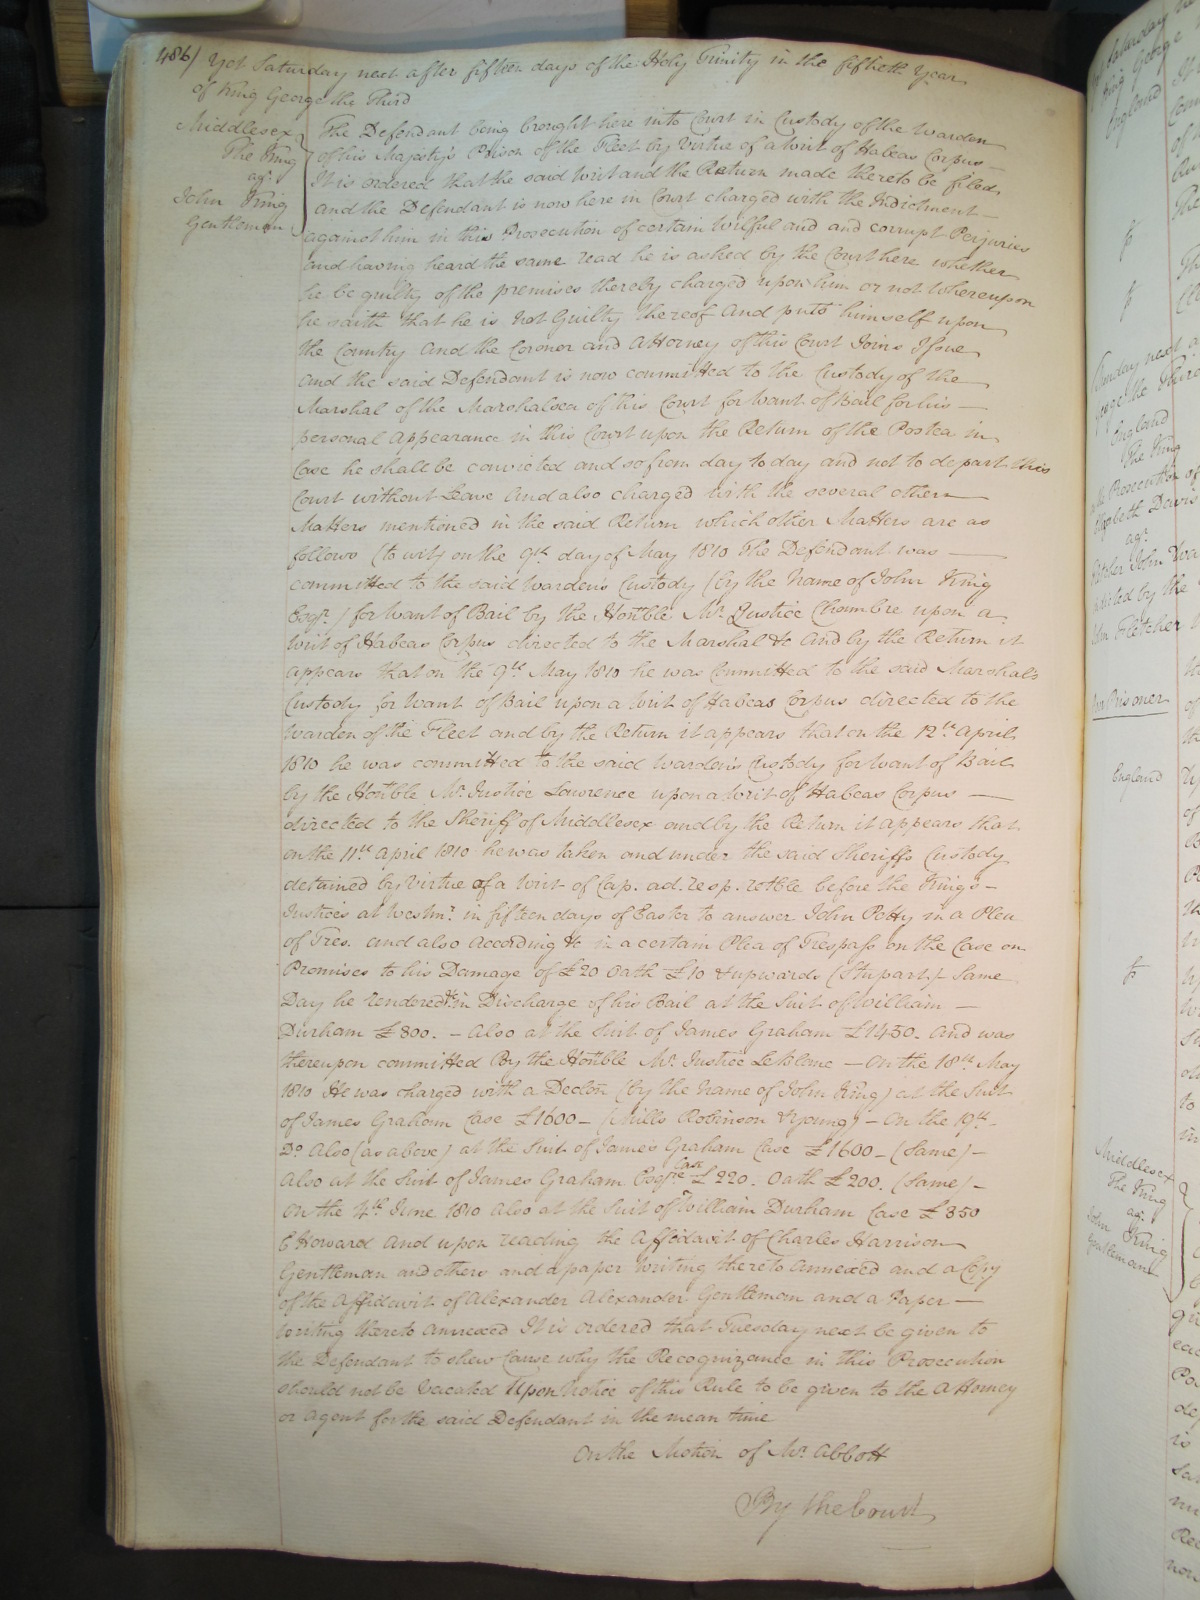 486) Yet Saturday next after fifteen days of the Holy Trinity in the fiftieth Year
of King George the Third
Middlesex
The King
agt
John King
Gentleman
The Defendant being brought here into Court in Custody of the Warden
of his Majesty's Prison of the Fleet by Virtue of a Writ of Habeas Corpus
It is ordered that the said Writ and the Return made thereto be filed
and the Defendant is now here in Court charged with the Indictment
against him in this Prosecution of certain Wilful and and corrupt Perjuries
and having heard the same read he is asked by the Court here whether
he be guilty of the premises thereby charged upon him or not Whereupon
he saith that he is Not Guilty thereof And puts himself upon
the Country And the Coroner and Attorney of this Court Joins Issue
And the said Defendant is now committed to the Custody of the
Marshal of the Marshalsea of this Court for Want of Bail for his
personal Appearance in this Court upon the Return of the Postea in
Case he shall be convicted and so from day to day and not to depart this
Court without Leave And also charged with the several other
Matters mentioned in the said Return which other Matters are as
follows (to wit) on the 9th day of May 1810 The Defendant was
committed to the said Warden's Custody (by the Name of John King
Esqr.) for Want of Bail by the Honble Mr. Justice Chambre upon a
Writ of Habeas Corpus directed to the Marshal &c And by the Return it
appears that on the 9th May 1810 he was Committed to the said Marshal's
Custody for Want of Bail upon a Writ of Habeas Corpus directed to the
Warden of the Fleet and by the Return it appears that on the 12th April
1810 he was committed to the said Warden's Custody for Want of Bail
by the Honble Mr. Justice Lawrence upon a Writ of Habeas Corpus
directed to the Sheriff of Middlesex and by the Return it appears that
on the 11th April 1810 he was taken and under the said Sheriffs Custody
detained by Virtue of a Writ of Cap. ad. resp. retble before the Kings
Justices at Westmr. in fifteen days of Easter to answer John Potty in a Plea
of Tres. and also According &c in a certain Plea of Trespass on the Case on
Promises to his Damage of £20 Oath £10 & upwards (Stupart) Same
Day he rendered &c in Discharge of his Bail at the Suit of William
Durham £800. - Also at the Suit of James Graham £1450. And was
thereupon committed By the Honble Mr. Justice Le Blanc - On the 18th May
1810 He was charged with a Declon (by the Name of John King) at the Suit
of James Graham Case £1600 - (Mills Robinson & Young) - On the 19th
Do. Also (as above) at the Suit of James Graham Case £1600 - (Same) -
Also at the Suit of James Graham Esqre Case £220. Oath £200. (Same) -
On the 4th June 1810 Also at the Suit of William Durham Case £850
E Howard And upon reading the Affidavit of Charles Harrison
Gentleman and others and a paper Writing thereto Annexed and a Copy
of the Affidavit of Alexander Alexander Gentleman and a Paper
Writing thereto Annexed It is ordered that Tuesday next be given to
the Defendant to shew Cause why the Recognizance in this Prosecution
should not be Vacated Upon Notice of this Rule to be given to the Attorney
or Agent for the said Defendant in the mean time
On the Motion of Mr. Abbott
By the Court
King George
England
England
The King
Prosecution of
Elizabeth Davis
agt.
Fletcher
Prisoner
England
Middlesex
The King
agt.
John King
Gentleman